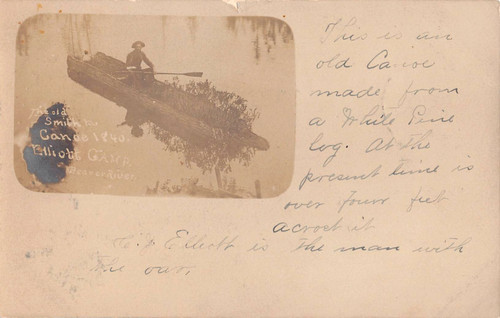 The old
Smith
Canoe 1840
Elliott Camp
Beaver River
This is an
old Canoe
made from
a White Pine
log. At the
present time is
over four feet
acrost it
Elliott is the man with
the oar.